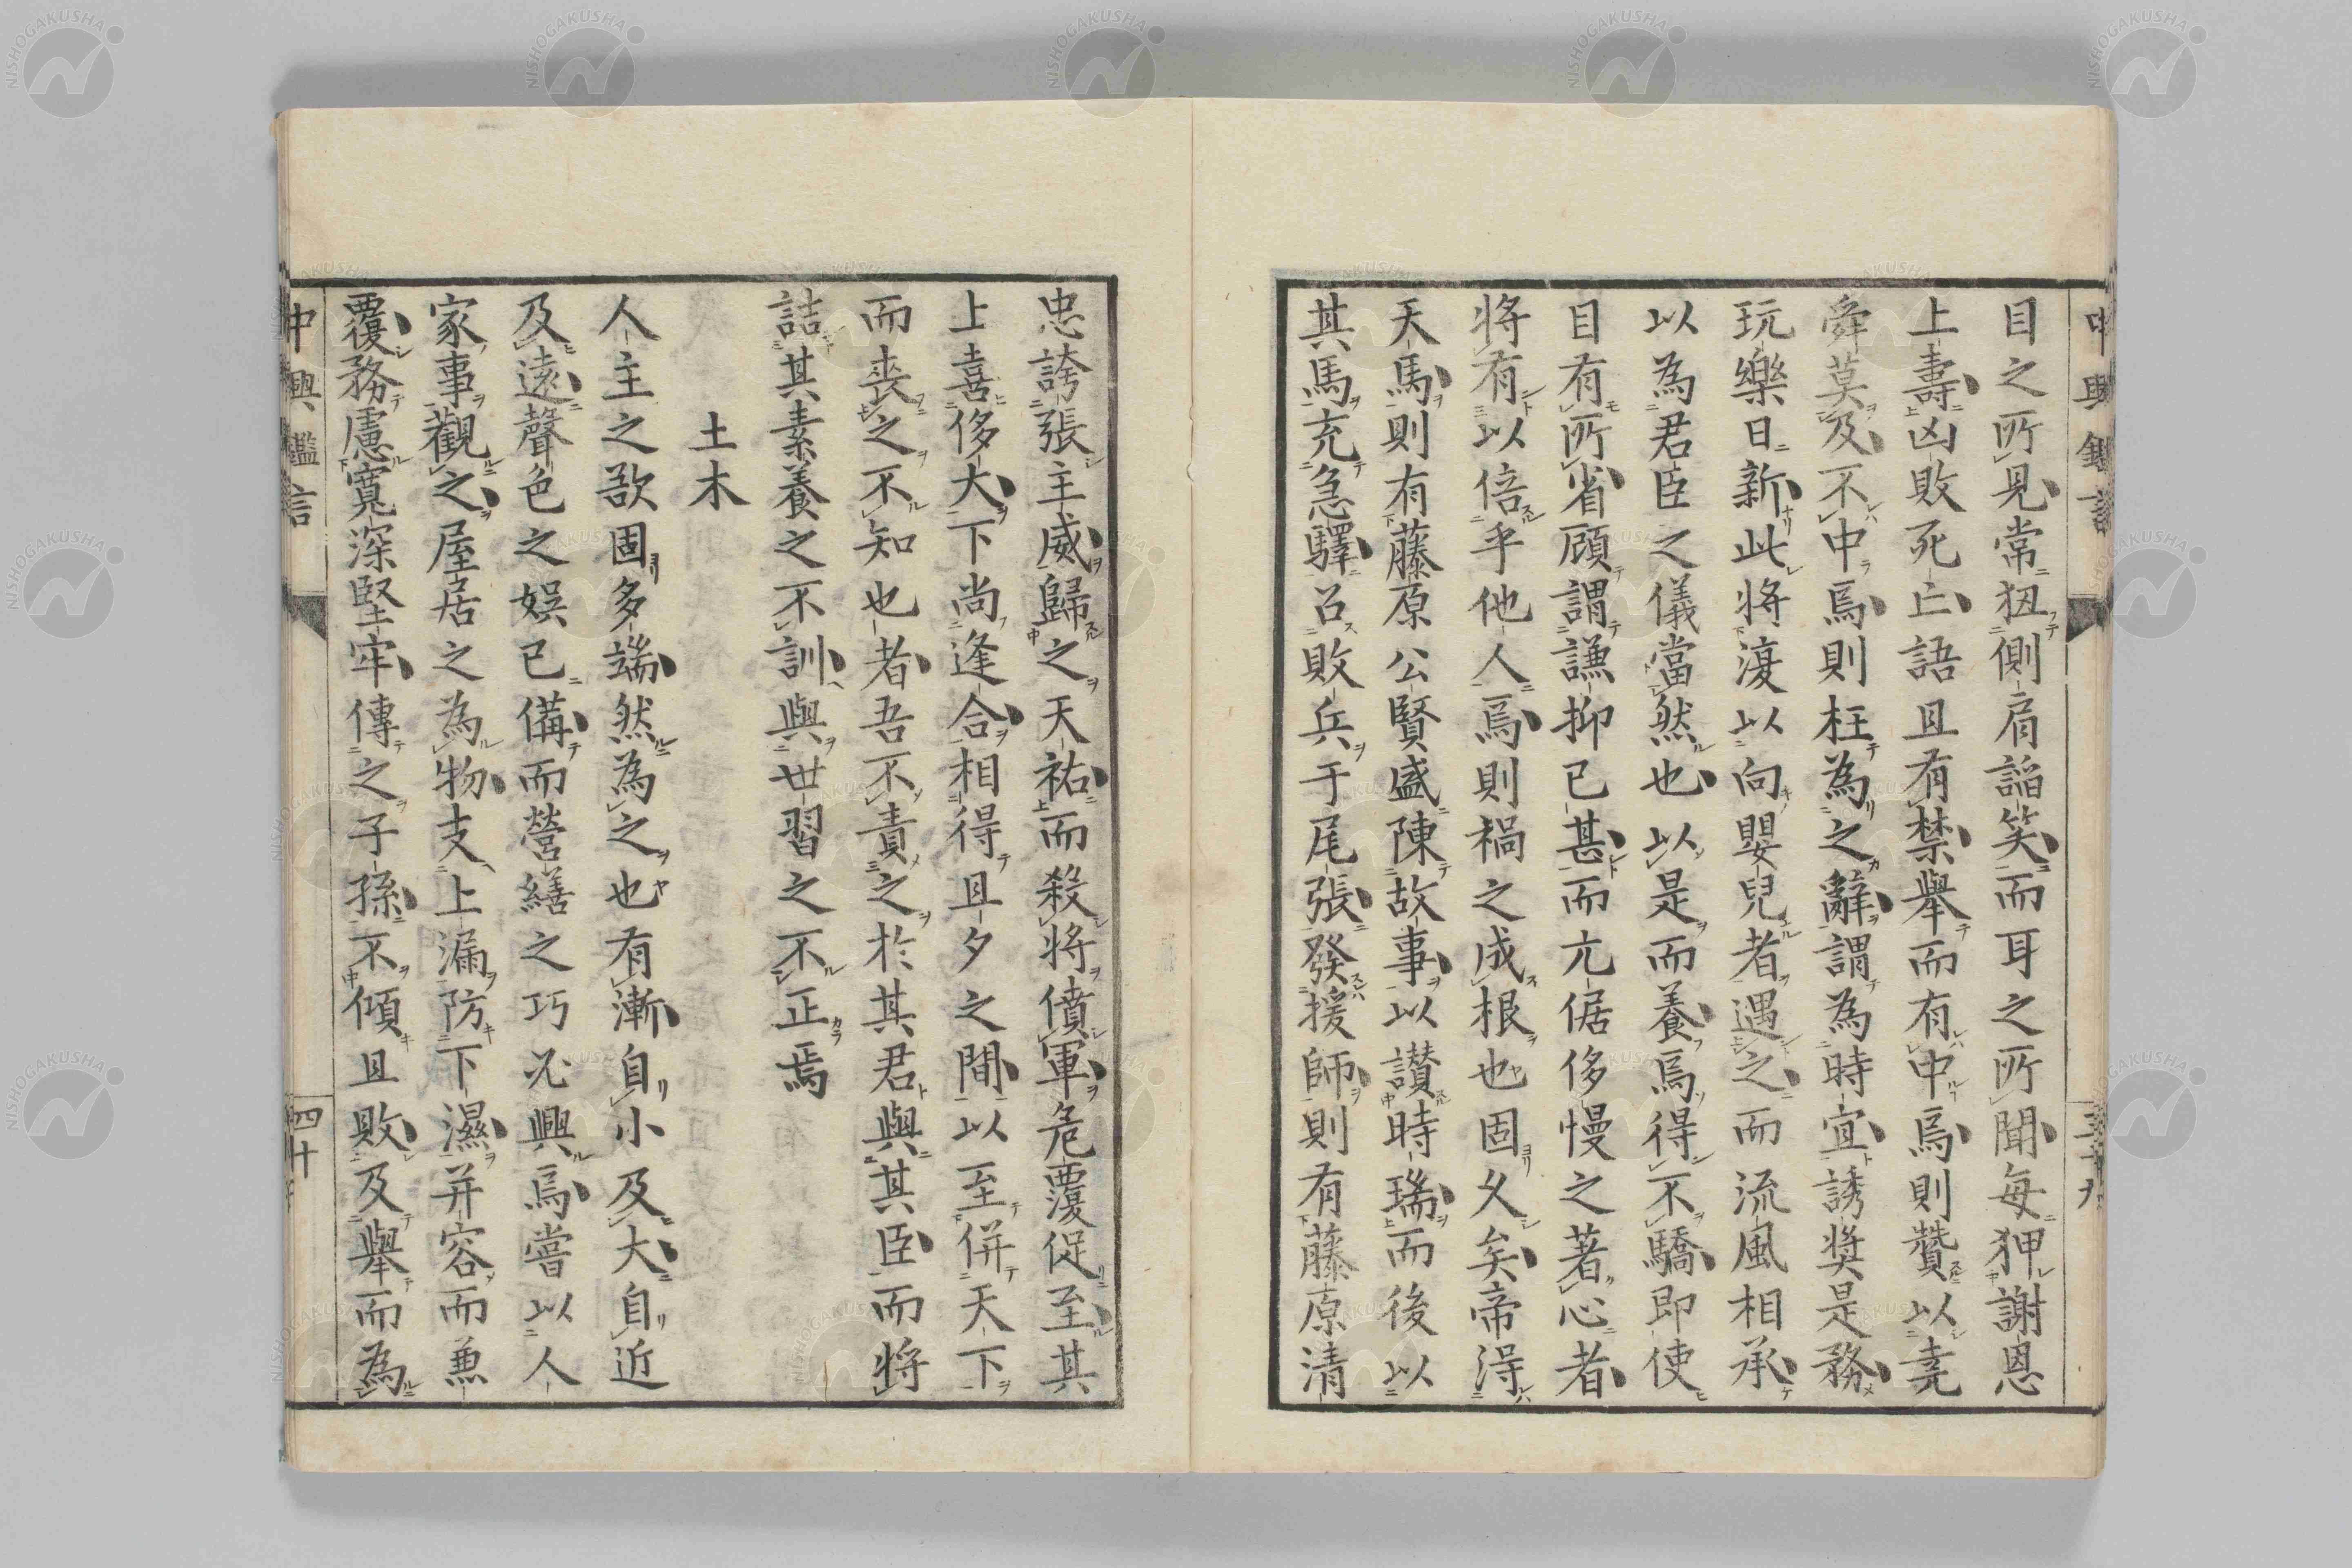 目之所見常狃側肩諂笑而耳之所聞每狎謝恩
上壽凶敗死亡語且有禁舉而有中焉則贊以堯
舜莫及不中焉則枉為之辭謂為時宜誘獎是務
玩樂日新此將復以向嬰兒者遇之而流風相承
以為君臣之儀當然也以是而養焉得不驕即使
目有所省顧謂謙抑已甚而亢倨侈慢之著心者
將有以倍乎他人焉則禍之成根也固久矣帝得
天馬則有藤原公賢盛陳故事以讃時瑞而後以
其馬充急驛召敗兵于尾張發援師則有藤原清
忠誇張主威歸之天祐而殺將僨軍危覆從至其
上喜侈大下尚逢合相得且夕之間以至併天下
而喪之不知也者吾不責之於其君與其臣而將
詰其素養之不訓與世習之不正焉
土木
人主之欲固多端然為之也有漸自小及大自近
及遠聲色之娛已備而營繕之巧必興焉嘗以人
家事觀之屋居之為物支上漏防下濕并容而兼
覆務慮寬深堅牢傳之子孫不傾且敗及舉而為
中興鑑言
四十
NISHOGAKUSHA